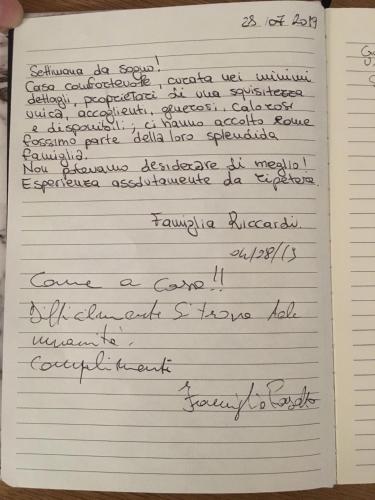 28 07 2019
Settimana da sogno!
Casa confortevole, curata nei minimi
dettagli, proprietari di una squisitezza
unica, accoglienti, generosi, calorosi
e disponibili; ci hanno accolto come
fossimo parte della loro splendida
famiglia.
Non potevamo desiderare di meglio!
Esperienza assolutamente da ripetere.
Famiglia Riccardi.
Come a casa!!
Difficilmente si trova tale
umanità.
Complimenti
Famiglia